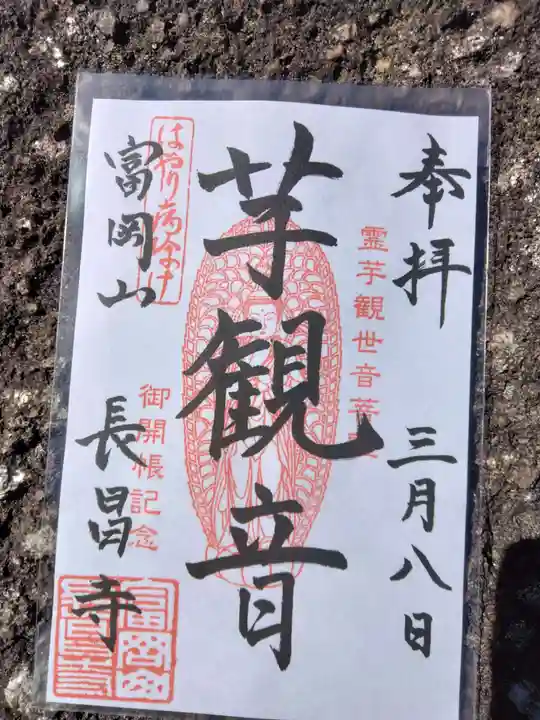 奉拝
三月八日
霊芋観世音菩
芋観音
はやり病除け
富岡山
御開帳記念
長昌寺